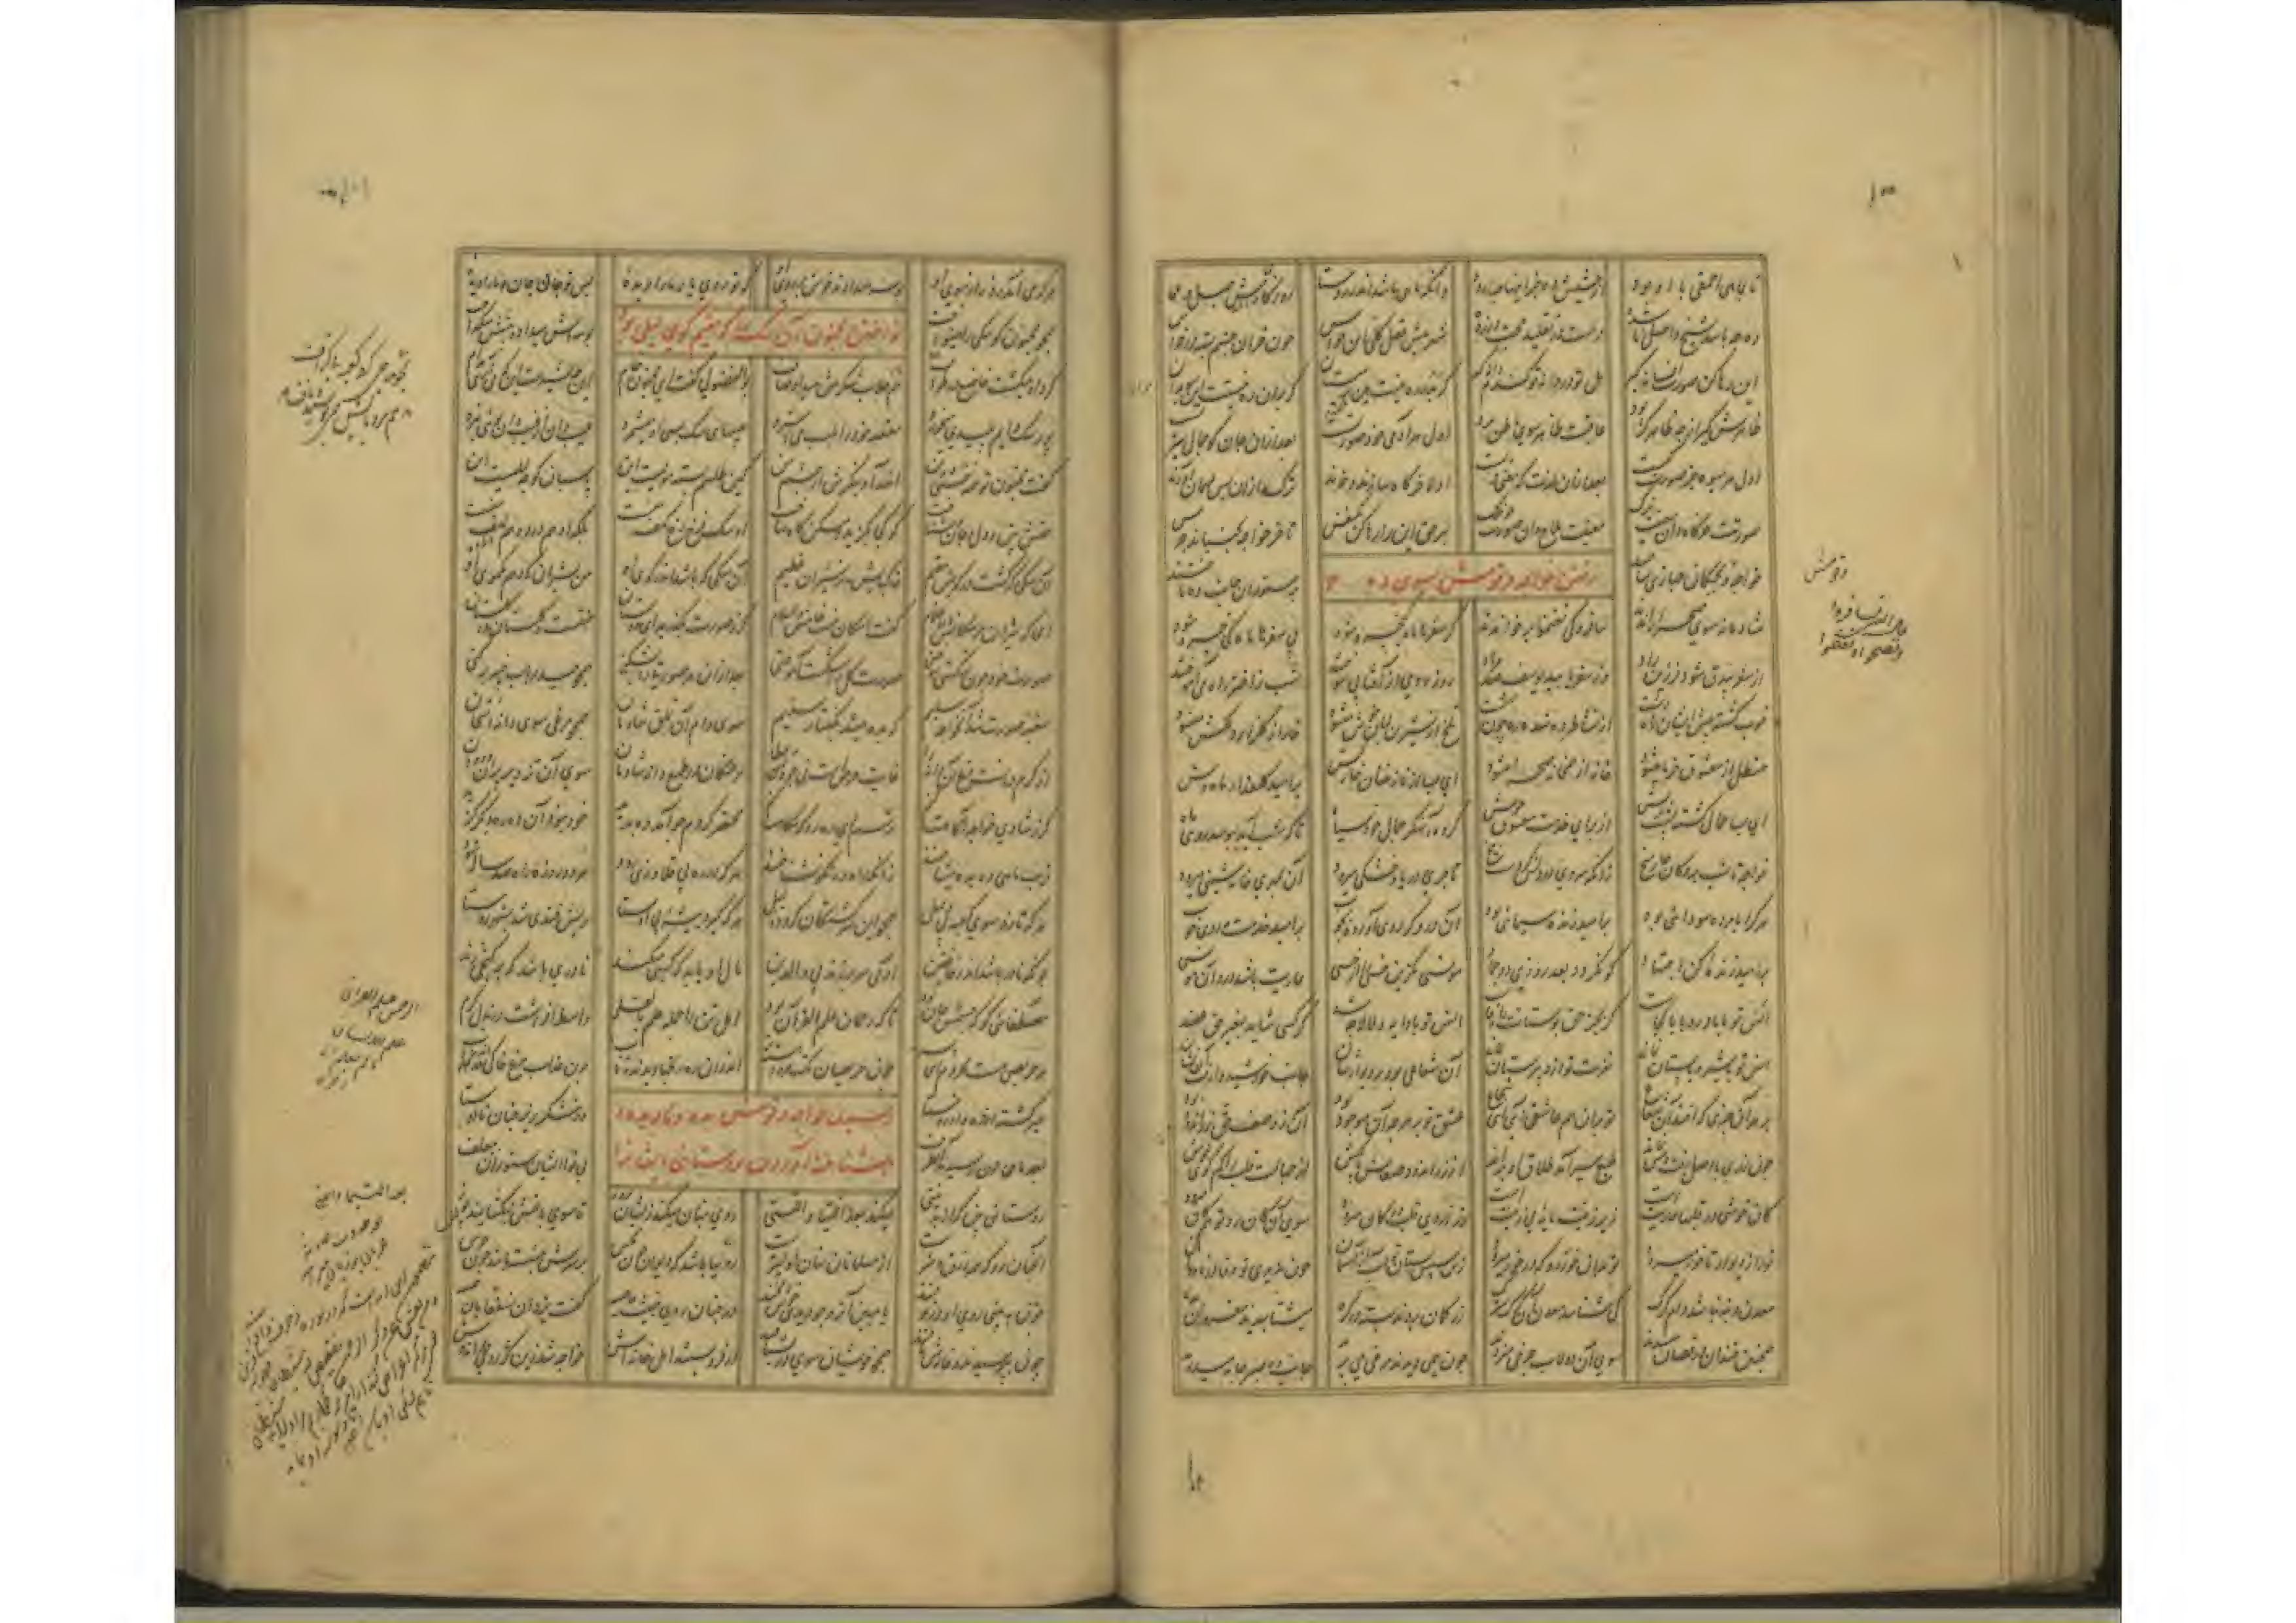 ۱۰۰
تا بماهی احمقی با او بود از حشیش ده جز اینها چه درود وانکه ماهی باشد اندر روستا روزگاری باشدش جهل و عمی
ده چه باشد شیخ واصل ناشده دست در تقلید و حجت در زده شهر پیش عقل کلی این حواس چون خران چشم بسته در خراس
این رها کن صورت افسانه گیر هل تو دردانه تو گندم دانه گیر گر بدر ره نیست هین بر می‌ستان گر بدان ره نیستت این سو بران
ظاهرش گیر ارچه ظاهر کژ بود عاقبت ظاهر سوی باطن برد اول هر آدمی خود صورتست بعد ازان جان کو جمال سیرتست
اول هر میوه جز صورت کیست بعد ازان لذت که معنی ویست اولا خرگاه سازند و خرند ترک را زان پس بمهمان آورند
صورتت خرگاه دان معنیت ترک معنیت ملاح دان صورت چو فلک بهر حق این را رها کن یک نفس تا خر خواجه بجنباند جرس
رفتن خواجه و قومش بسوی ده
خواجه و بچگان جهازی ساختند بر ستوران جانب ده تاختند
شادمانه سوی صحرا راندند سافروا کی تغنموا بر خواندند کز سفرها ماه کیخسرو شود بی سفرها ماه کی خسرو شود
از سفر بیدق شود فرزین راد وز سفر یابید یوسف صد مراد روز روی از آفتابی سوختند شب ز اختر راه می آموختند
خوب گشته پیش ایشان راه زشت از نشاط ده شده ره چون بهشت تلخ از شیرین لبان خوش میشود خار از گلزار دلکش میشود
حنظل از معشوق خرما میشود خانه از همخانه صحرا میشود ای بسا از نازنینان خارکش بر امید گلعذار ماه وش
ای بسا حمال گشته پشت ریش از برای خدمت معشوق خویش کرده آهنگر جمال خود سیاه تا که شب آید ببوسد روی ماه
خواجه تا شب بر دکان چار میخ زانکه سروی در دلش کردست بیخ تاجری دریا و خشکی میرود آن بمهر خانه شینی میرود
هر کرا با مرده سودایی بود بر امید زنده سیمایی بود آن دروگر روی آورده بچوب بر امید خدمت مه روی خوب
بر امید زنده کن اجتهاد کو نگردد بعد روزی دو جماد مونسی مگزین خسی را از خسی عاریت باشد درو آن مونسی
انس تو با مادر و بابا کجاست گر بجز حق مونسانت را وفاست انس تو با دایه و لالا چه شد گر کسی شاید بغیر حق عضد
انس تو با شیر و با پستان نماند نفرت تو از دبیرستان نماند آن شعاعی بود بر دیوارشان جانب خورشید وا رفت آن نشان
بر هر آن چیزی که افتد آن شعاع تو بران هم عاشق آیی ای شجاع عشق تو بر هر چه آن موجود بود آن ز وصف حق زراندود بود
چون زری با اصل رفت و مس بماند طبع سیر آمد طلاق او براند از زراندود صفاتش پا بکش از جهالت قلب را کم گوی خوش
کان خوشی در قلبها عاریتست زیر زینت مایه بی زینتست زر ز روی قلب در کان میرود سوی آن کان رو تو هم کان میرود
نور از دیوار تا خور میرود تو بدان خور رو که در خور میرود زین سپس بستان تو آب از آسمان چون ندیدی تو وفا در ناودان
معدن دنبه نباشد دام گرگ کی شناسد معدن آن گرگ سترگ زر گمان بردند بسته در گره میشتابیدند مغروران بده
همچنین خندان و رقصان میشدند سوی آن دولاب چرخی میزدند چون همی دیدند مرغی می پرید جانب ده صبر جامه میدرید
هر که می آمد ز ده از سوی او بوسه میدادند خوش بر روی او که تو روی یار ما را دیده پس تو جان را جان و ما را دیده
نواختن مجنون آن سگ را که مقیم کوی لیلی بود
همچو مجنون کو سگی را مینواخت بوسه اش میداد و پیشش میگداخت
گرد او میگشت خاضع در طواف هم جلاب شکرش میداد صاف بوالفضولی گفت ای مجنون خام این چه شیدست این که می آری مدام
پوز سگ دایم پلیدی میخورد مقعد خود را بلب می استرد عیبهای سگ بسی او میشمرد عیب دان از غیب دان بویی نبرد
گفت مجنون تو همه نقشی و تن اندرآ و بنگرش از چشم من کین طلسم بسته مولیست این پاسبان کوچه لیلیست این
همتش بین و دل و جان و شناخت کو کجا بگزید و مسکن گاه ساخت او سگ فرخ رخ کهف منست بلکه او همدرد و هم لهف منست
آن سگی که گشت در کویش مقیم خاک پایش به ز شیران عظیم آن سگی که باشد اندر کوی او من بشیران کی دهم یک موی او
ای که شیران مر سگانش را غلام گفت امکان نیست خامش والسلام گر ز صورت بگذرید ای دوستان جنتست و گلستان در گلستان
صورت خود چون شکستی سوختی صورت کل را شکست آموختی بعد ازان هر صورتی را بشکنی همچو حیدر باب خیبر برکنی
سغبه صورت شد آن خواجه سلیم که بده میشد بگفتار سقیم سوی دام آن تملق شادمان همچو مرغی سوی دانه امتحان
از کرم دانست مرغ آن دانه را غایت حرصست نی جود آن عطا مرغکان در طمع دانه شادمان سوی آن تزویر پران و دوان
گر ز شادی خواجه آگاهت کنم ترسم ای رهرو که بیگاهت کنم مختصر کردم چو آمد ده پدید خود نبود آن ده ره دیگر گزید
قرب ماهی ده بده میتاختند زانکه راه ده نکو نشناختند هر که در ره بی قلاوزی رود هر دو روزه راه صد ساله شود
هر که تازد سوی کعبه بی دلیل همچو این سرگشتگان گردد ذلیل هر که گیرد پیشه بی اوستا ریشخندی شد بشهر و روستا
جز که نادر باشد اندر خافقین آدمی سر بر زند بی والدین مال او یابد که کسبی میکند نادری باشد که بر گنجی زند
مصطفایی کو که جسمش جان بود تا که رحمان علم القرآن بود اهل تن را جمله علم بالقلم واسطه افراشت در بذل کرم
هر حریصی هست محروم ای پسر چون حریصان تک مرو آهسته تر اندران ره رنجها دیدند و تاب چون عذاب مرغ خاکی در عذاب
سیر گشته از ده و از روستا وز شکرریز چنان نااوستا
رسیدن خواجه و قومش بده و نادیده و
ناشناخته آوردن روستایی ایشانرا
بعد ماهی چون رسیدند آن طرف بی نوا ایشان ستوران بی علف
روستایی بین که از بدنیتی میکند بعد اللتیا والتی روی پنهان میکند زیشان بروز تا سوی باغش بنگشایند پوز
آنچنان رو که همه زرق و شرست از مسلمانان نهان اولیترست رویها باشد که دیوان چون مگس بر سرش بنشسته باشند چون حرس
چون ببینی روی او در تو فتند یا مبین آن رو چو دیدی خوش مخند در چنان روی خبیث عاصیه گفت یزدان نسفعا بالناصیه
چون بپرسیدند و خانش یافتند همچو خویشان سوی در بشتافتند در فرو بستند اهل خانه اش خواجه شد زین کژروی دیوانه وش